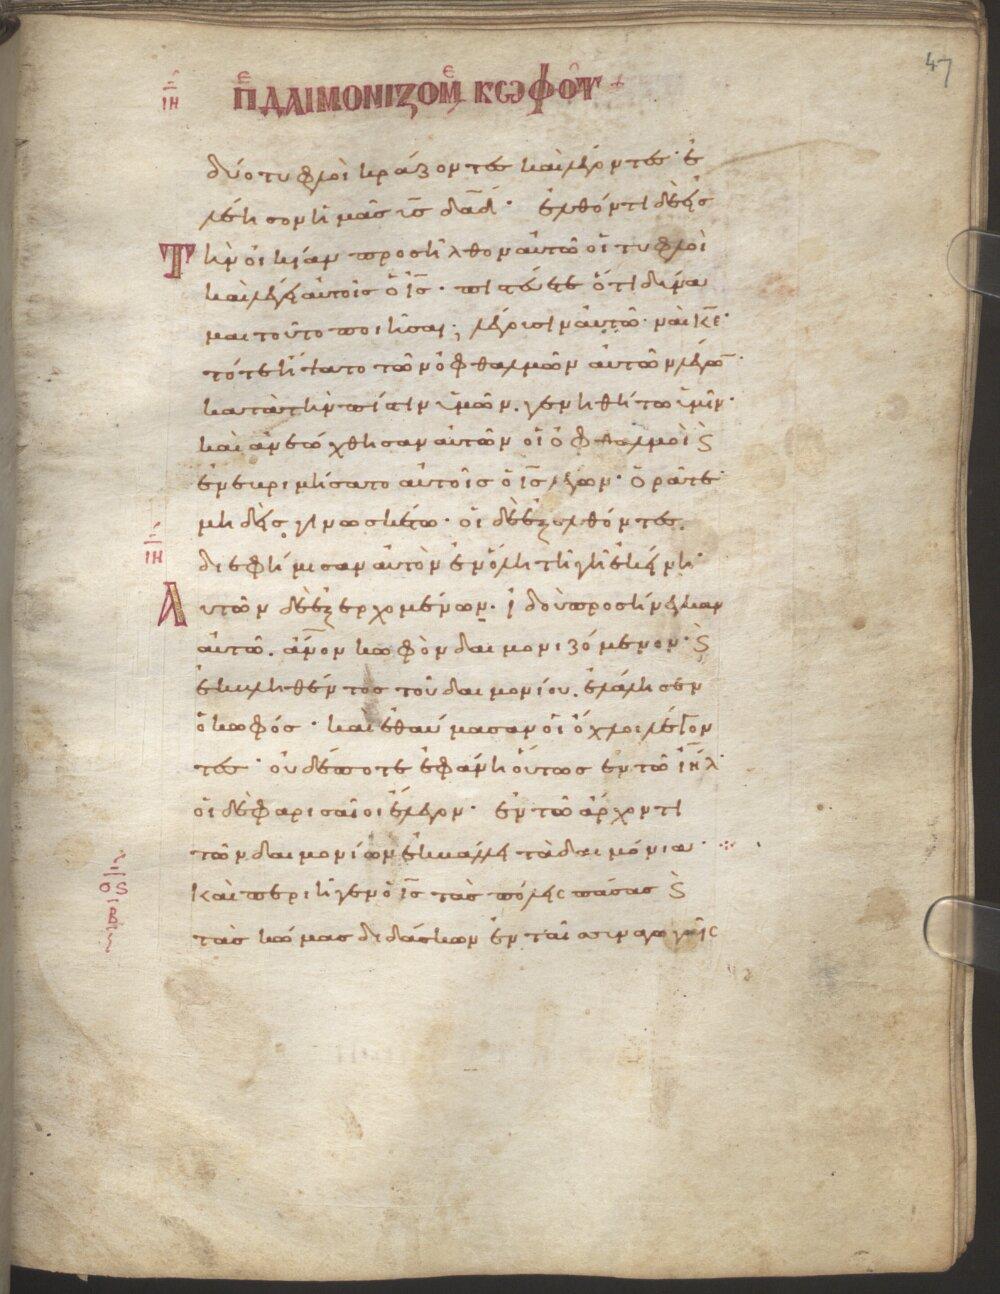 47
ιη
πε δαιμονιζομε κωφοῦ +
δύο τυφλοὶ κράζοντες καὶ λέγοντες· ἐ
λέησον ἡμᾶς υ̅ς̅ δα̅δ̅· ἐλθόντι δὲ εἰς
τὴν οἰκίαν προσῆλθον αὐτῶ οἱ τυφλοὶ
καὶ λέγει αὐτοῖς ὁ ι̅ς̅· πιστεύετε ὅτι δύνα
μαι τοῦτο ποιῆσαι; λέγουσιν αὐτῶ· ναὶ κ̅ε̅·
τότε ἥψατο τῶν ὀφθαλμῶν αὐτῶν λέγων·
κατὰ τὴν πίστιν ὑμῶν. γενηθήτω ὑμῖν·
καὶ ἀνεώχθησαν αὐτῶν οἱ ὀφθαλμοὶ ϛ
ἐνεβριμήσατο αὐτοῖς ὁ ι̅ς̅ λέγων· ὁρᾶτε
μηδεὶς γινωσκέτω· οἱ δὲ ἐξελθόντες.
διεφήμισαν αὐτὸν ἐν ὅλη τῆ γῆ ἐκείνη·
ιη
Αυτῶν δὲ ἐξερχομένων· ἰδοὺ προσήνεγκαν
αὐτῶ. ἄν̅ον κωφὸν δαιμονιζόμενον· ϛ
ἐκβληθέντος τοῦ δαιμονίου. ἐλάλησεν
ὁ κωφός· καὶ ἐθαύμασαν οἱ ὄχλοι λέγον
τες· οὐδέποτε ἐφάνη οὕτως ἐν τῶ ι̅η̅λ·
οἱ δὲ φαρισαῖοι ἔλεγον· ἐν τῶ ἄρχοντι
τῶν δαιμονίων ἐκβάλλει τὰ δαιμόνια·
Καὶ περιῆγεν ὁ ι̅ς̅ τὰς πόλεις πάσας ϛ
τὰς κώμας διδάσκων ἐν ταῖς συναγωγαῖς